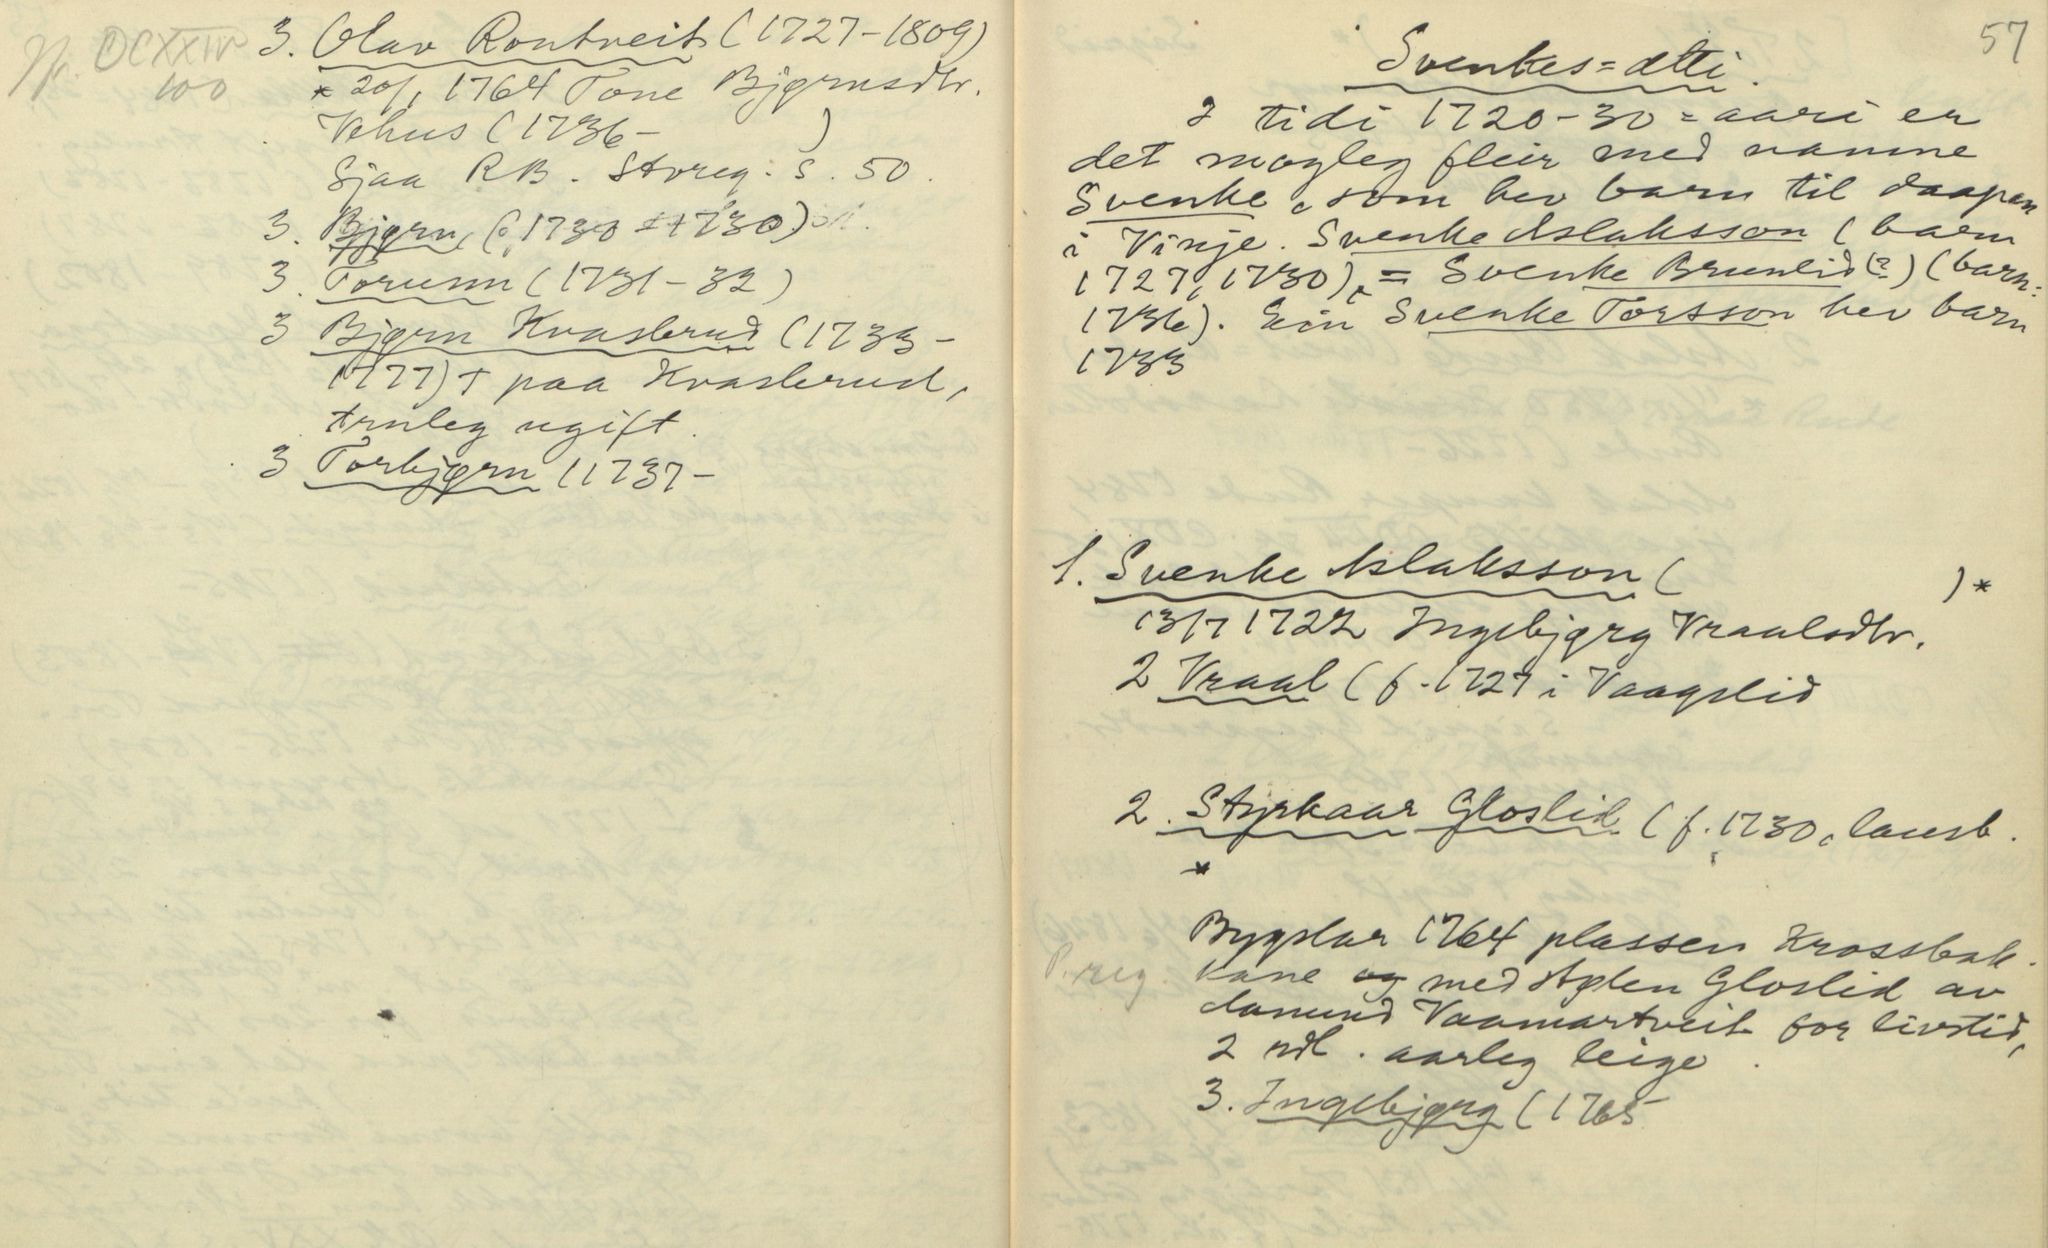 CCXXIV
100
3. Olav Rontveit (1727-1809)
* 20/1 1764 Tone Bjørnsdtr.
Vehus (1736- )
Sjaa RB. Storeg. S. 50.
3. Bjørn, (1730 ++ 730)
3. Torunn (1731-32)
3 Bjørn Kvasberud (1733-
1777) + paa Kvasberud,
truleg ugift.
3 Torbjørn (1737-
57
Svenkes=ætti.
I tidi 1720-30=aari er
det mogleg fleir med namne
Svenke, som hev barn til daapen
i Vinje. Svenke Aslaksson (barn
1727, 1730), = Svenke Brunlid (?) (barn:
1736). Ein Svenke Torsson hev barn
1733
1. Svenke Aslaksson ( ) *
13/7 1727 Ingebjørg Vraalsdtr.
2 Vraal (f. 1727 i Vaagslid
2. Styrkaar Gloslid (f. 1730, lausb.
*
Bygslar 1764 plassen Krossbak-
P. reg. kane og med Aplen Gloslid av
Aamund Vaamartveit for livstid,
2 rdl. aarleg leige.
3. Ingebjørg (1765